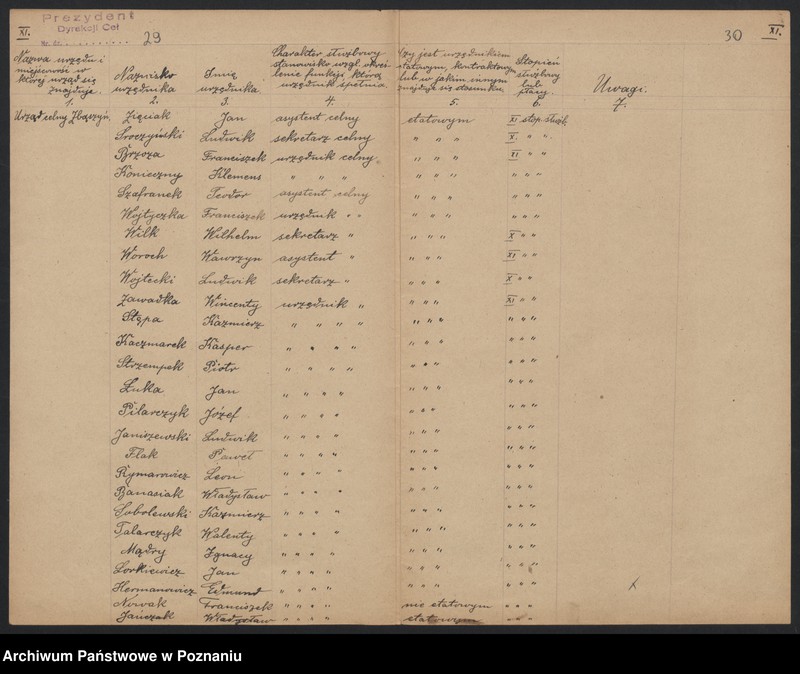 XI.
Prezydent
Dyrekcji Ceł
29
30
XI.
Nazwa urzędu i
miejscowość w
której urząd się
znajduje.
Nazwisko
urzędnika
Imię
urzędnika.
Charakter służbowy
stanowisko wzgl. okreś
lenie funkcji którą
urzędnik spełnia.
Czy jest urzędnikiem
etatowym, kontraktowym
lub w jakim innym
znajduje się stosunku.
Stopień
służbowy
lub
płacy.
Uwagi.
1. 2. 3. 4. 5. 6. 7.
Urząd celny Zbąszyń. Zięciak Jan asystent celny etatowym XI stop. służb.
Sroczyński Ludwik sekretarz celny " " " X. " "
Brzoza Franciszek urzędnik celny " " " XI " "
Konieczny Klemens " " " " " " " " "
Szafranek Teodor asystent celny " " " " " "
Wojtyczka Franciszek urzędnik " " " " " " " "
Wilk Wilhelm sekretarz " " " " X " "
Woroch Wawrzyn asystent " " " " XI " "
Wojtecki Ludwik sekretarz " " " " X " "
Zawadka Wincenty urzędnik " " " " XI " "
Stępa Kazmierz " " " " " " " " " "
Kaczmarek Kasper " " " " " " " " " "
Strzempek Piotr " " " " " " " " " "
Łuka Jan " " " " " " " " " "
Pilarczyk Józef " " " " " " " " " "
Janiszewski Ludwik " " " " " " " " " "
Flak Paweł " " " " " " " " " "
Rymarowicz Leon " " " " " " " " " "
Banasiak Władysław " " " " " " " " " "
Sobolewski Kazmierz " " " " " " " " " "
Talarczyk Walenty " " " " " " " " " "
Mądry Ignacy " " " " " " " " " "
Lorkiewicz Jan " " " " " " " " " "
Hermanowicz Edmund " " " " " " " " " "
Nowak Franciszek " " " " nie etatowym " " "
Jańczak Władysław " " " " etatowym " " "
Archiwum Państwowe w Poznaniu